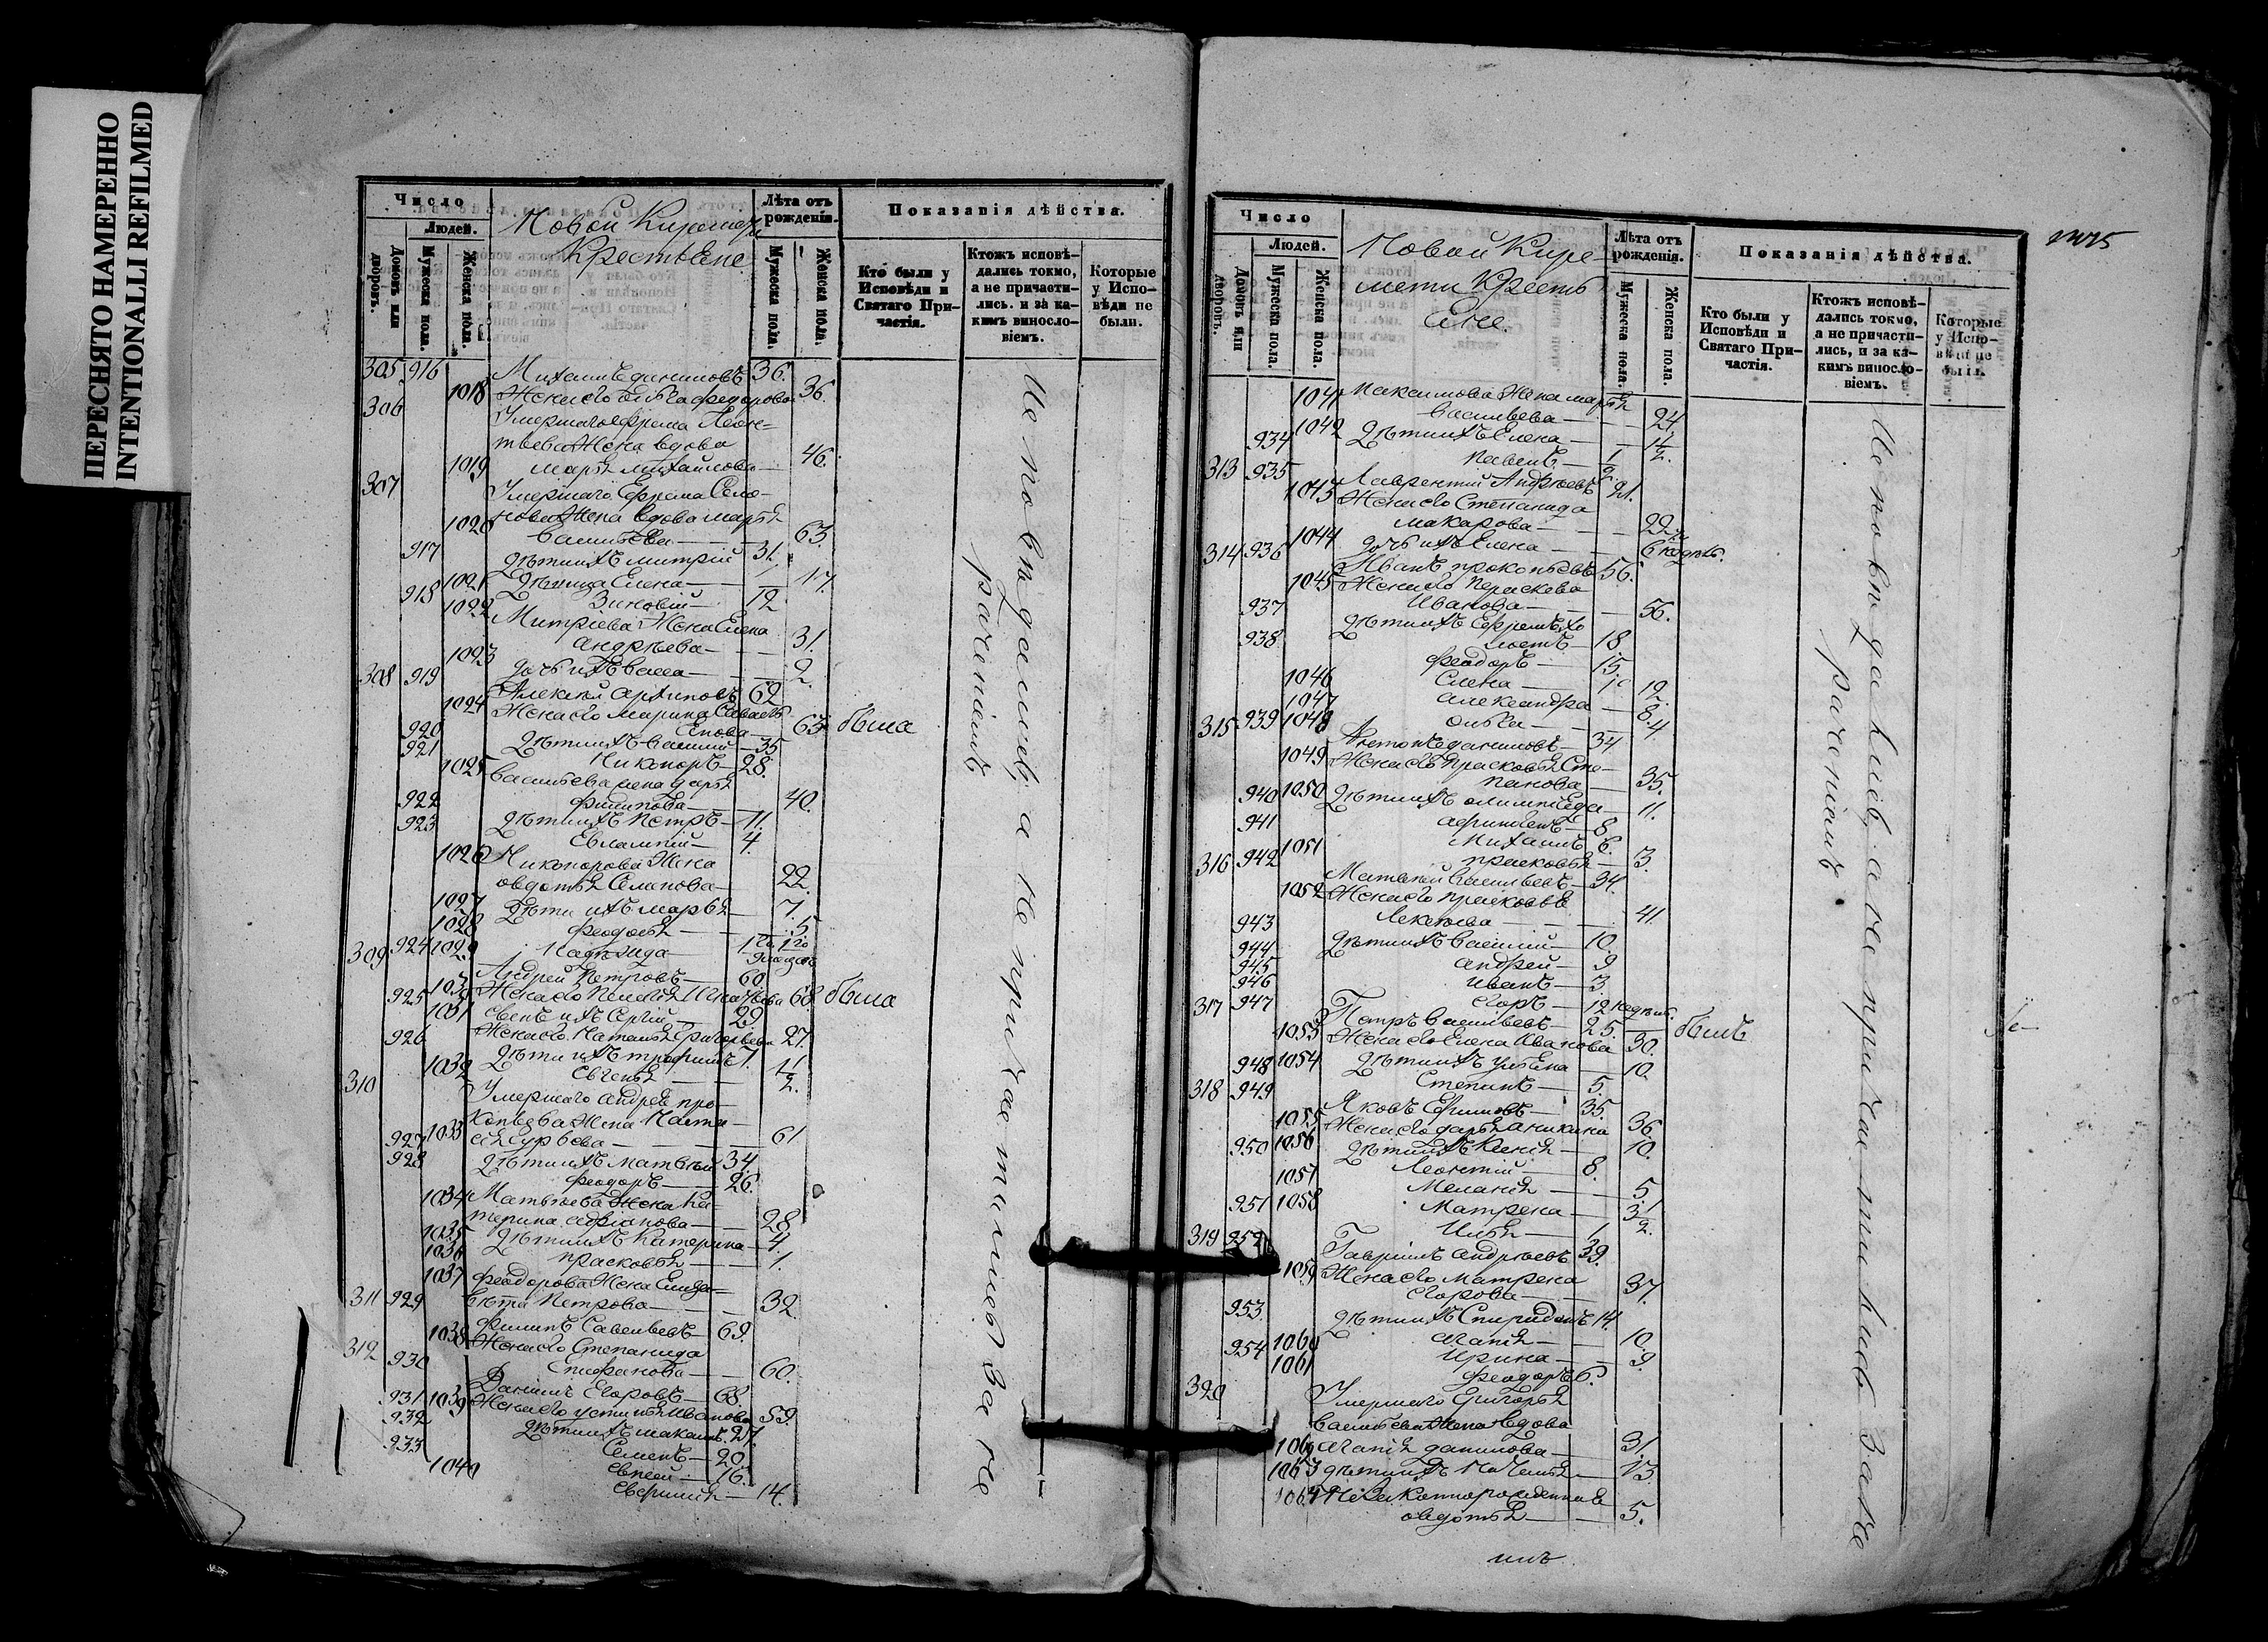 ПЕРЕСНЯТО НАМЕРЕННО
INTENTIONALLI REFILMED
Число
Людей.
Домовъ или дворовъ.
Мужеска пола.
Женска пола.
Новой
Крестьяне
Лѣта отъ рожденія.
Мужеска пола.
Женска пола.
Показанія дѣйства.
Кто были у Исповѣди и Святаго Причастія.
Ктожъ исповѣдались токмо, а не причастились, и за какимъ винословіемъ.
Которые у Исповѣди не были.
305 916 Михаилъ Даниловъ 36.
1018 Жена его Ольга Федорова 36.
306 Умершаго Ефрема Леон-
тьева Жена вдова
1019 Марья Михайлова 46.
307 Умершаго Ефрема Семе-
нова Жена вдова Марья
1020 Васильева 63.
917 Дѣти ихъ Митрій 31.
1021 Дѣвица Елена 17.
918 Зиновій 12
1022 Митріева Жена Елена
Андрѣева 31.
1023 дочь ихъ Васса 2.
308 919 Алексѣй Архиповъ 62
1024 Жена его Марина Савасть
янова 63 была
920 Дѣти ихъ Василій 35
921 Никоноръ 28.
1025 Васильева жена Дарья
Филипова 40.
922 Дѣти ихъ Петръ 11.
923 Евлампій 4.
1026 Никонорова Жена
Овдотья Семенова 22.
1027 Дѣти ихъ Марья 7.
1028 Феодосья 5
1029 Надѣжда
309 924 Андрей Петровъ 60
1030 Жена его Пелагея Игнатьева 68 была
925 Сынъ ихъ Сергій 29.
1031 Жена его Наталья Григорьева 27.
926 Дѣти ихъ Трофимъ 7.
1032 Евгенья
310 Умершаго Андрея Про-
копьева Жена Наста-
1033 сья Гурьева 61
927 Дѣти ихъ Матвѣй 34.
928 Феодоръ 26.
1034 Матвѣева Жена Ка-
терина Адріанова 28
1035 Дѣти ихъ Катерина 4.
1036 Прасковья 1.
1037 Феодорова Жена Елиза-
вѣта Петрова 32
311 929 Филипъ Савельевъ 69.
1038 Жена его Степанида
Епифанова 60.
312 930 Даніилъ Егоровъ 68.
1039 Жена его Устинья Иванова 59.
931 Дѣти ихъ Максимъ 27.
932 Семенъ 20.
933 Евсей 16.
1040 14.
Исповѣдались, а не причастились за не
раченіемъ
Число
Людей.
Домовъ или дворовъ.
Мужеска пола.
Женска пола.
Новой Кире
мети Кресть
яне.
Лѣта отъ рожденія.
Мужеска пола.
Женска пола.
Показанія дѣйства.
Кто были у Исповѣди и Святаго Причастія.
Ктожъ исповѣдались токмо, а не причастились, и за какимъ винословіемъ.
Которые у Исповѣди не были.
1041 Максимова Жена Марья
Васильева 24.
1042 Дѣти ихъ Елена 1 1/2.
934 Павелъ 1/2
313 935 Лаврентій Андрѣевъ 21.
1043 Жена его Степанида
Макарова 22
1044 дочь ихъ Елена 6 недѣль.
314 936 Иванъ Прокопьевъ 56.
1045 Жена его Параскева
Иванова 56.
937 Дѣти ихъ Ефремъ Хо
лостъ 18
938 Феодоръ 15.
1046 Елена 12
1047 Александра 8.
1048 Ольга 4
315 939 Антонъ Даниловъ 34
1049 Жена его Прасковья Сте-
панова 35.
1050 Дѣти ихъ Олимпіяда 11.
940 8
941 Михаилъ 6.
1051 Прасковья 3.
316 942 Матвѣй Васильевъ 34.
1052 Жена его Прасковья
Алексѣева 41
943 Дѣти ихъ Василій 10.
944 Андрей 9
945 Иванъ 3.
946 Егоръ 12 недѣль.
317 947 Петръ Васильевъ 25. былъ
1053 Жена его Елена Иванова 30.
1054 Дѣти ихъ Ульяна 10.
948 Степанъ 5.
318 949 Яковъ Ефимовъ 35.
1055 Жена его Дарья Аникина 36
1056 Дѣти ихъ Ксенья 10.
950 Леонтій 8.
1057 Меланья 5
1058 Матрена 3 1/2
951 Илья 1.
319 952 Гавріилъ Андрѣевъ 39.
1059 Жена его Матрена
Егорова 37.
953. Дѣти ихъ Спиридонъ 14.
1060 Агафья 10.
1061 Ирина 9.
954 Феодоръ 6.
320 Умершаго Григорья
Васильева Жена Вдова
1062 Агафья Данилова 31.
1063 дѣти ихъ Наталья 13
1064 Незаконнорожденная
Овдотья 5.
Исповѣдались, а не причастились за не
раченіемъ